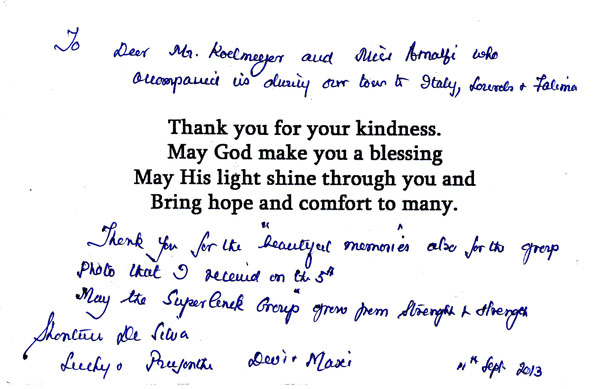 To Dear Mr. Koelmeyer and Miss Amalfi who
accompanied us during our tour to Italy, Lourds & Fatima
Thank you for your kindness.
May God make you a blessing
May His light shine through you and
Bring hope and comfort to many.
Thank you for the "beautiful memories" also for the group
photo that I received on the 5th
May the "Superlink Group" grow from strength to strength
De Silva
Devi & Maxi 11th Sept 2013